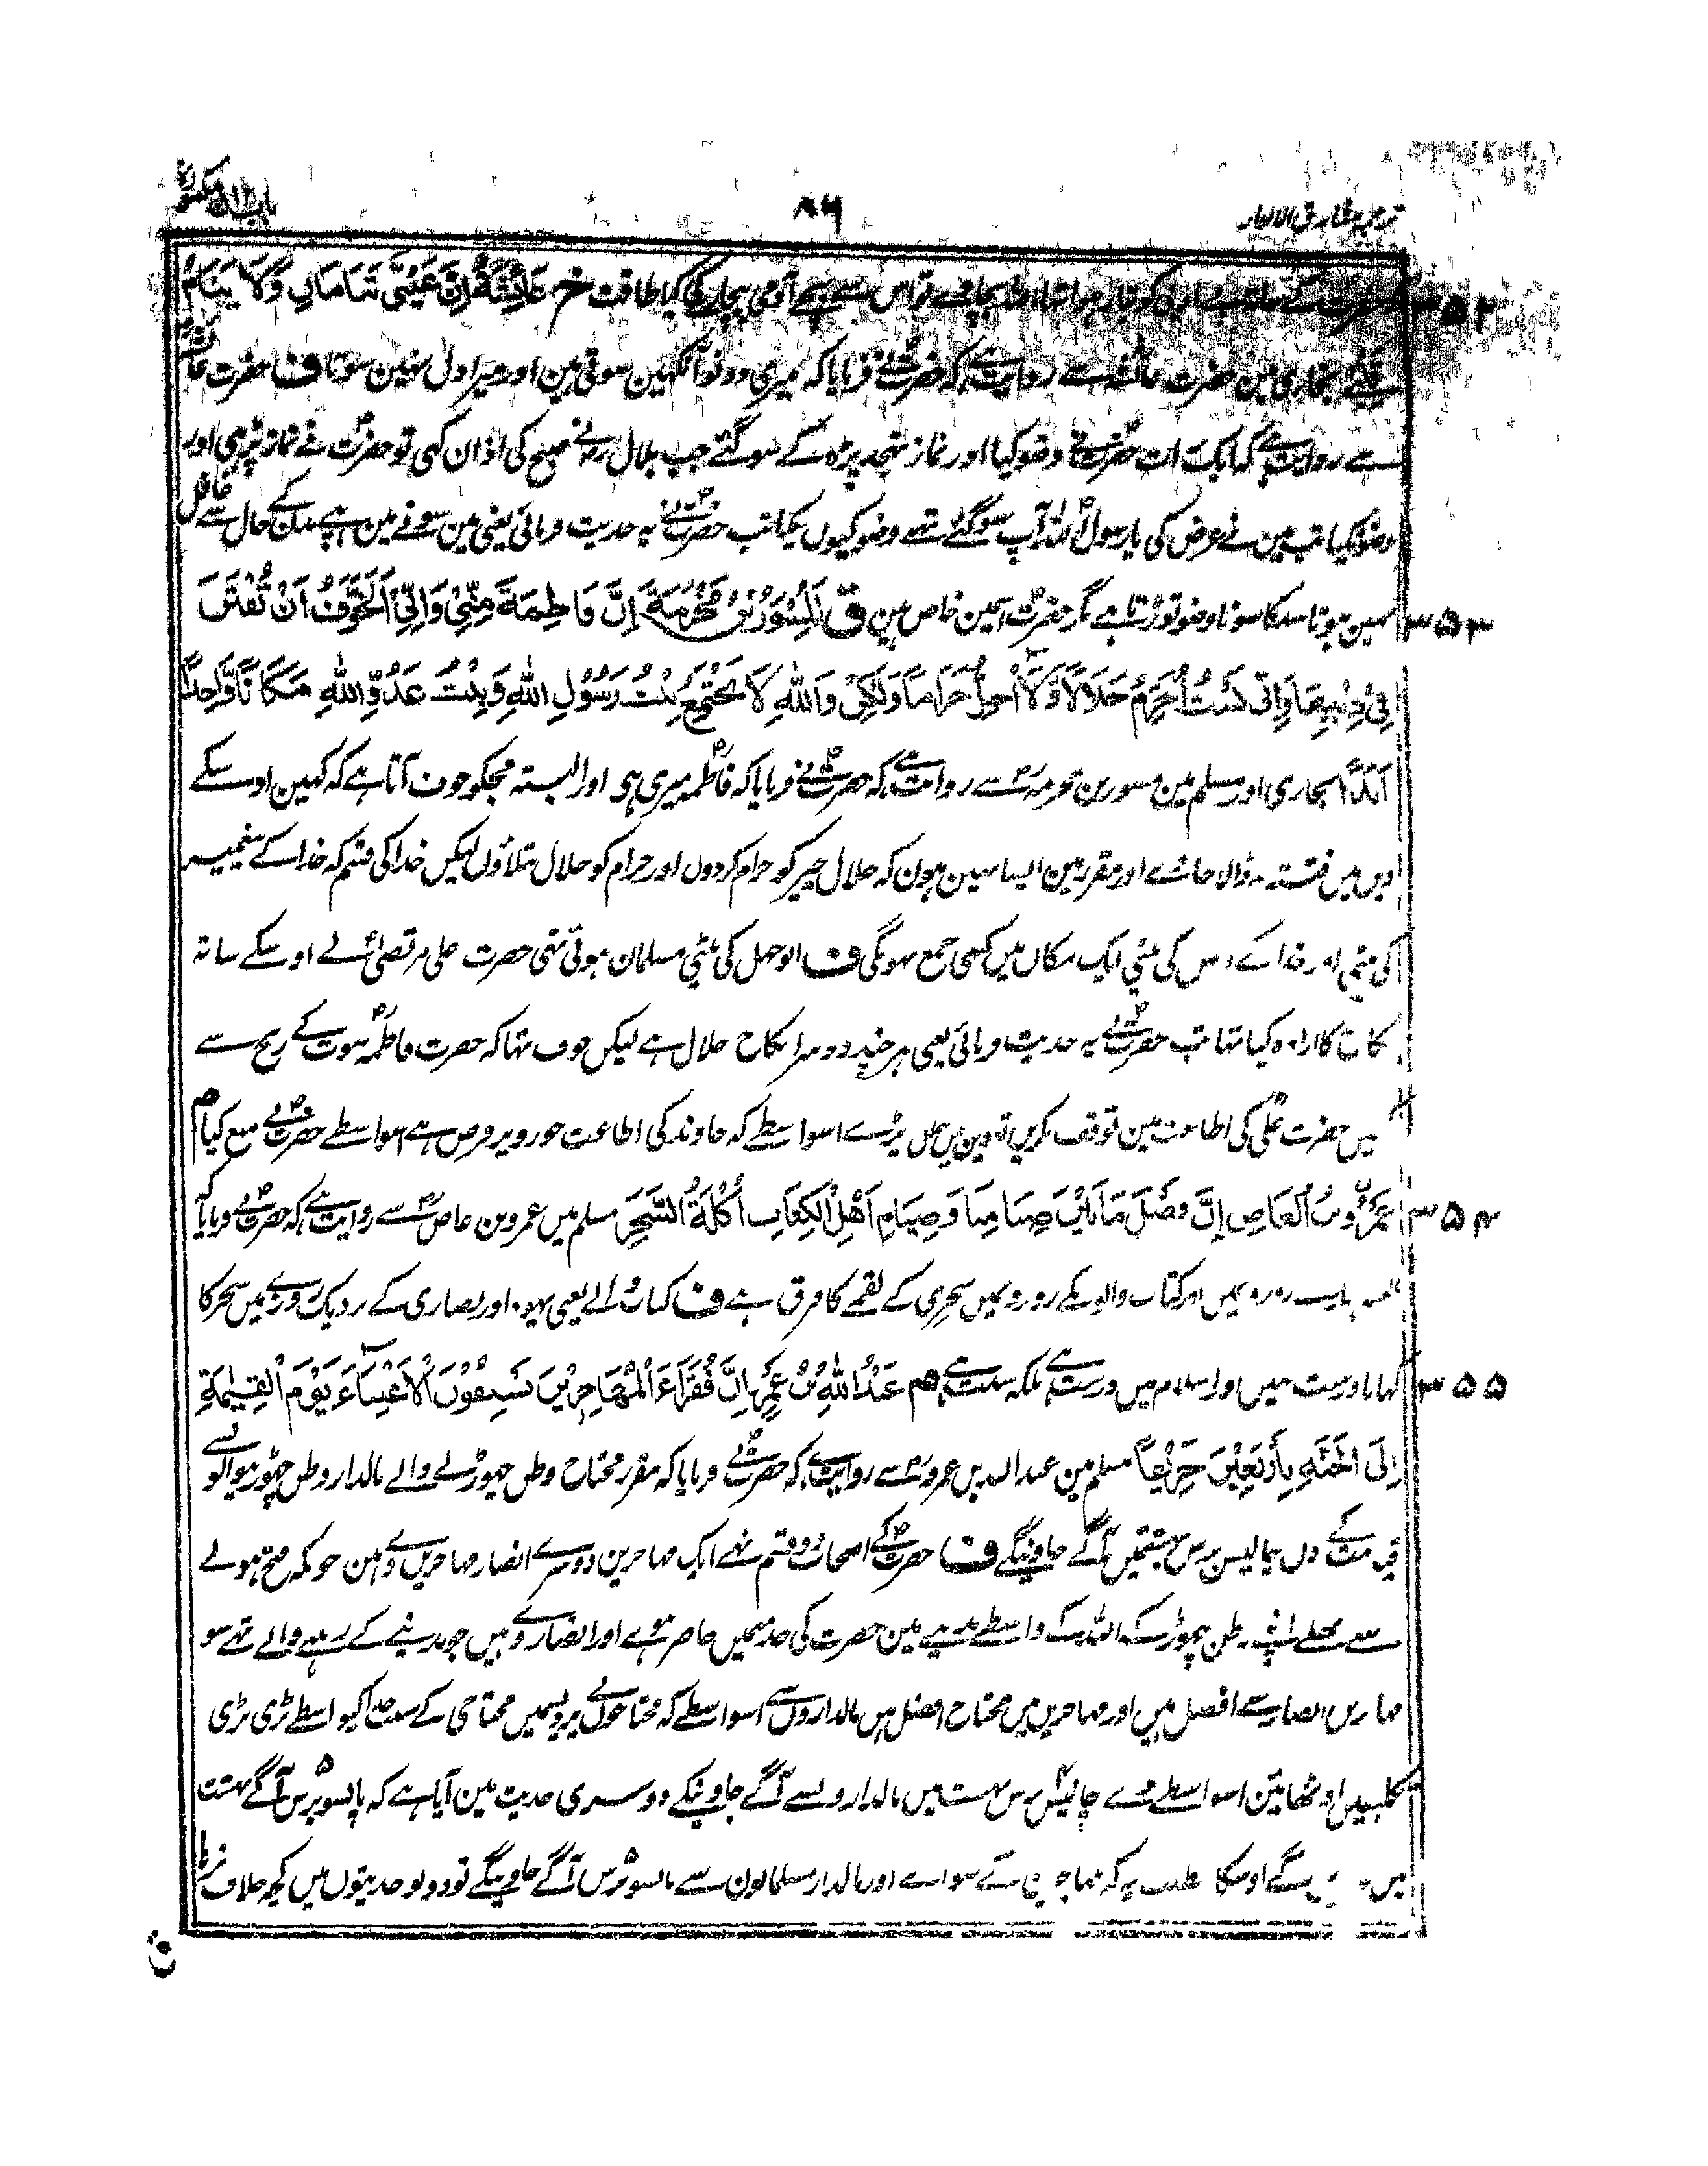 ترجمہ مشارق الانوار
۸۶
حضرت کے سامنے تو اس سے آدمی بیچارے کی کیا طاقت خ عَائِشَةُ اِنَّ عَيْنَيَّ تَنَامَانِ وَلَا يَنَامُ
قلبی بخاری مین حضرت عائشہ سے روایت ہے کہ حضرتؐ نے فرمایا کہ میری دونو آنکہین سوتی ہین اور میرا دل نہین سوتا ف حضرت عائشہ
سے روایت ہے کہ ایک رات حضرتؐ نے وضو کیا اور نماز تہجد پڑہ کے سوگئے جب بلال رضنے صبح کی اذان کہی تو حضرتؐ نے نماز پڑہی اور
وضو نکیا تب مین نے عرض کی یا رسول اللہ آپ سوگئے تھے وضو کیوں نکیا تب حضرتؐ نے یہ حدیث فرمائی یعنی مین سونے مین اپنے بدن کے حال سے غافل
۳۵۳ نہین ہوتا سبکا سونا وضو توڑتا ہے مگر حضرتؐ اسمین خاص ہین ق اَلْمِسْوَرُ بْنُ مَخْرَمَةَ اِنَّ فَاطِمَةَ مِنِّىْ وَاِنِّىْ اَتَخَوَّفُ اَنْ تُفْتَنَ
فِىْ دِيْنِهَا وَاِنِّى لَسْتُ اُحَرِّمُ حَلَالًا وَّلَا اُحِلُّ حَرَامًا وَلٰكِنْ وَاللّٰهِ لَا تَجْتَمِعُ بِنْتُ رَسُوْلِ اللّٰهِ وَبِنْتُ عَدُوِّ اللّٰهِ مَكَانًا وَّاحِدًا
اَبَدًا بخاری اور مسلم مین مسور بن مخرمہؓ سے روایت ہے کہ حضرتؐ نے فرمایا کہ فاطمہؓ میری ہی اور البتہ مجکو خوف آتا ہے کہ کہین اوسکے
دین میں فتنہ نہ ڈالا جائے اور مقرر مین ایسا نہین ہون کہ حلال چیز کو حرام کردوں اور حرام کو حلال بتلاؤں لیکن خدا کی قسم کہ خدا کے پیغمبر
کی بیٹی اور خدا کے دشمن کی بیٹی ایک مکان میں کبھی جمع نہونگی ف ابوجہل کی بیٹی مسلمان ہوئی تہی حضرت علی مرتضیٰؓ نے اوسکے ساتہ
نکاح کا ارادہ کیا تہا تب حضرتؐ نے یہ حدیث فرمائی یعنی ہر چند دوسرا نکاح حلال ہے لیکن خوف تہا کہ حضرت فاطمہؓ سوت کے رنج سے
میں حضرت علیؓ کی اطاعت مین توقف کریں تو دین میں خلل پڑے اسواسطے کہ خاوند کی اطاعت جورو پر فرض ہے اسواسطے حضرتؐ نے منع کیا م
۳۵۴ عَمْرُو بْنُ الْعَاصِ اِنَّ فَصْلَ مَا بَيْنَ صِيَامِنَا وَصِيَامِ اَهْلِ الْكِتَابِ اُكْلَةُ السَّحَرِ مسلم میں عمرو بن عاصؓ سے روایت ہے کہ حضرتؐ نے فرمایا کہ
ہمارے روزہ میں اور کتاب والونکے روزونمیں سحری کے لقمے کا فرق ہے ف کتاب والے یعنی یہود اور نصاری کے نزدیک روزے میں سحر کا
۳۵۵ کہانا درست نہیں اور اسلام میں درست ہے بلکہ سنت ہے م عَبْدُ اللّٰهِ بْنُ عَمْرٍو اِنَّ فُقَرَاءَ الْمُهَاجِرِيْنَ يَسْبِقُوْنَ الْاَغْنِيَاءَ يَوْمَ الْقِيٰمَةِ
اِلَى الْجَنَّةِ بِاَرْبَعِيْنَ خَرِيْفًا مسلم مین عبد اللہ بن عمروؓ سے روایت ہے کہ حضرتؐ نے فرمایا کہ مقرر محتاج وطن چہوڑنے والے مالدار وطن چہوڑنیوالوں سے
قیامت کے دن چالیس برس بہشت میں آگے جاوینگے ف حضرتؐ کے اصحاب دو قسم تہے ایک مہاجرین دوسرے انصار مہاجرین وے ہین جو مکہ فتح ہونے
سے پہلے اپنے وطن چہوڑ کے اللہ کے واسطے مدینے مین حضرت کی خدمتمیں حاضر ہوے اور انصار وے ہیں جو مدینے کے رہنے والے تہے سو
مہاجرین انصار سے افضل ہیں اور مہاجرین میں محتاج افضل ہیں مالداروں سے اسواسطے کہ محتاجوں نے پردیسمیں محتاجی کے سبب خدا کیواسطے بڑی بڑی
تکلیفیں اوٹھائین اسواسطے وے چالیس برس بہشت میں مالدارونسے آگے جاوینگے دوسری حدیث مین آیا ہے کہ پانسو برس آگے بہشت
میں جاوینگے اوسکا مطلب یہ کہ مہاجرین کے سواے اور مالدار مسلمانون سے پانسو برس آگے جاوینگے تو دونو حدیثوں میں کچھ خلاف نرہا
ق